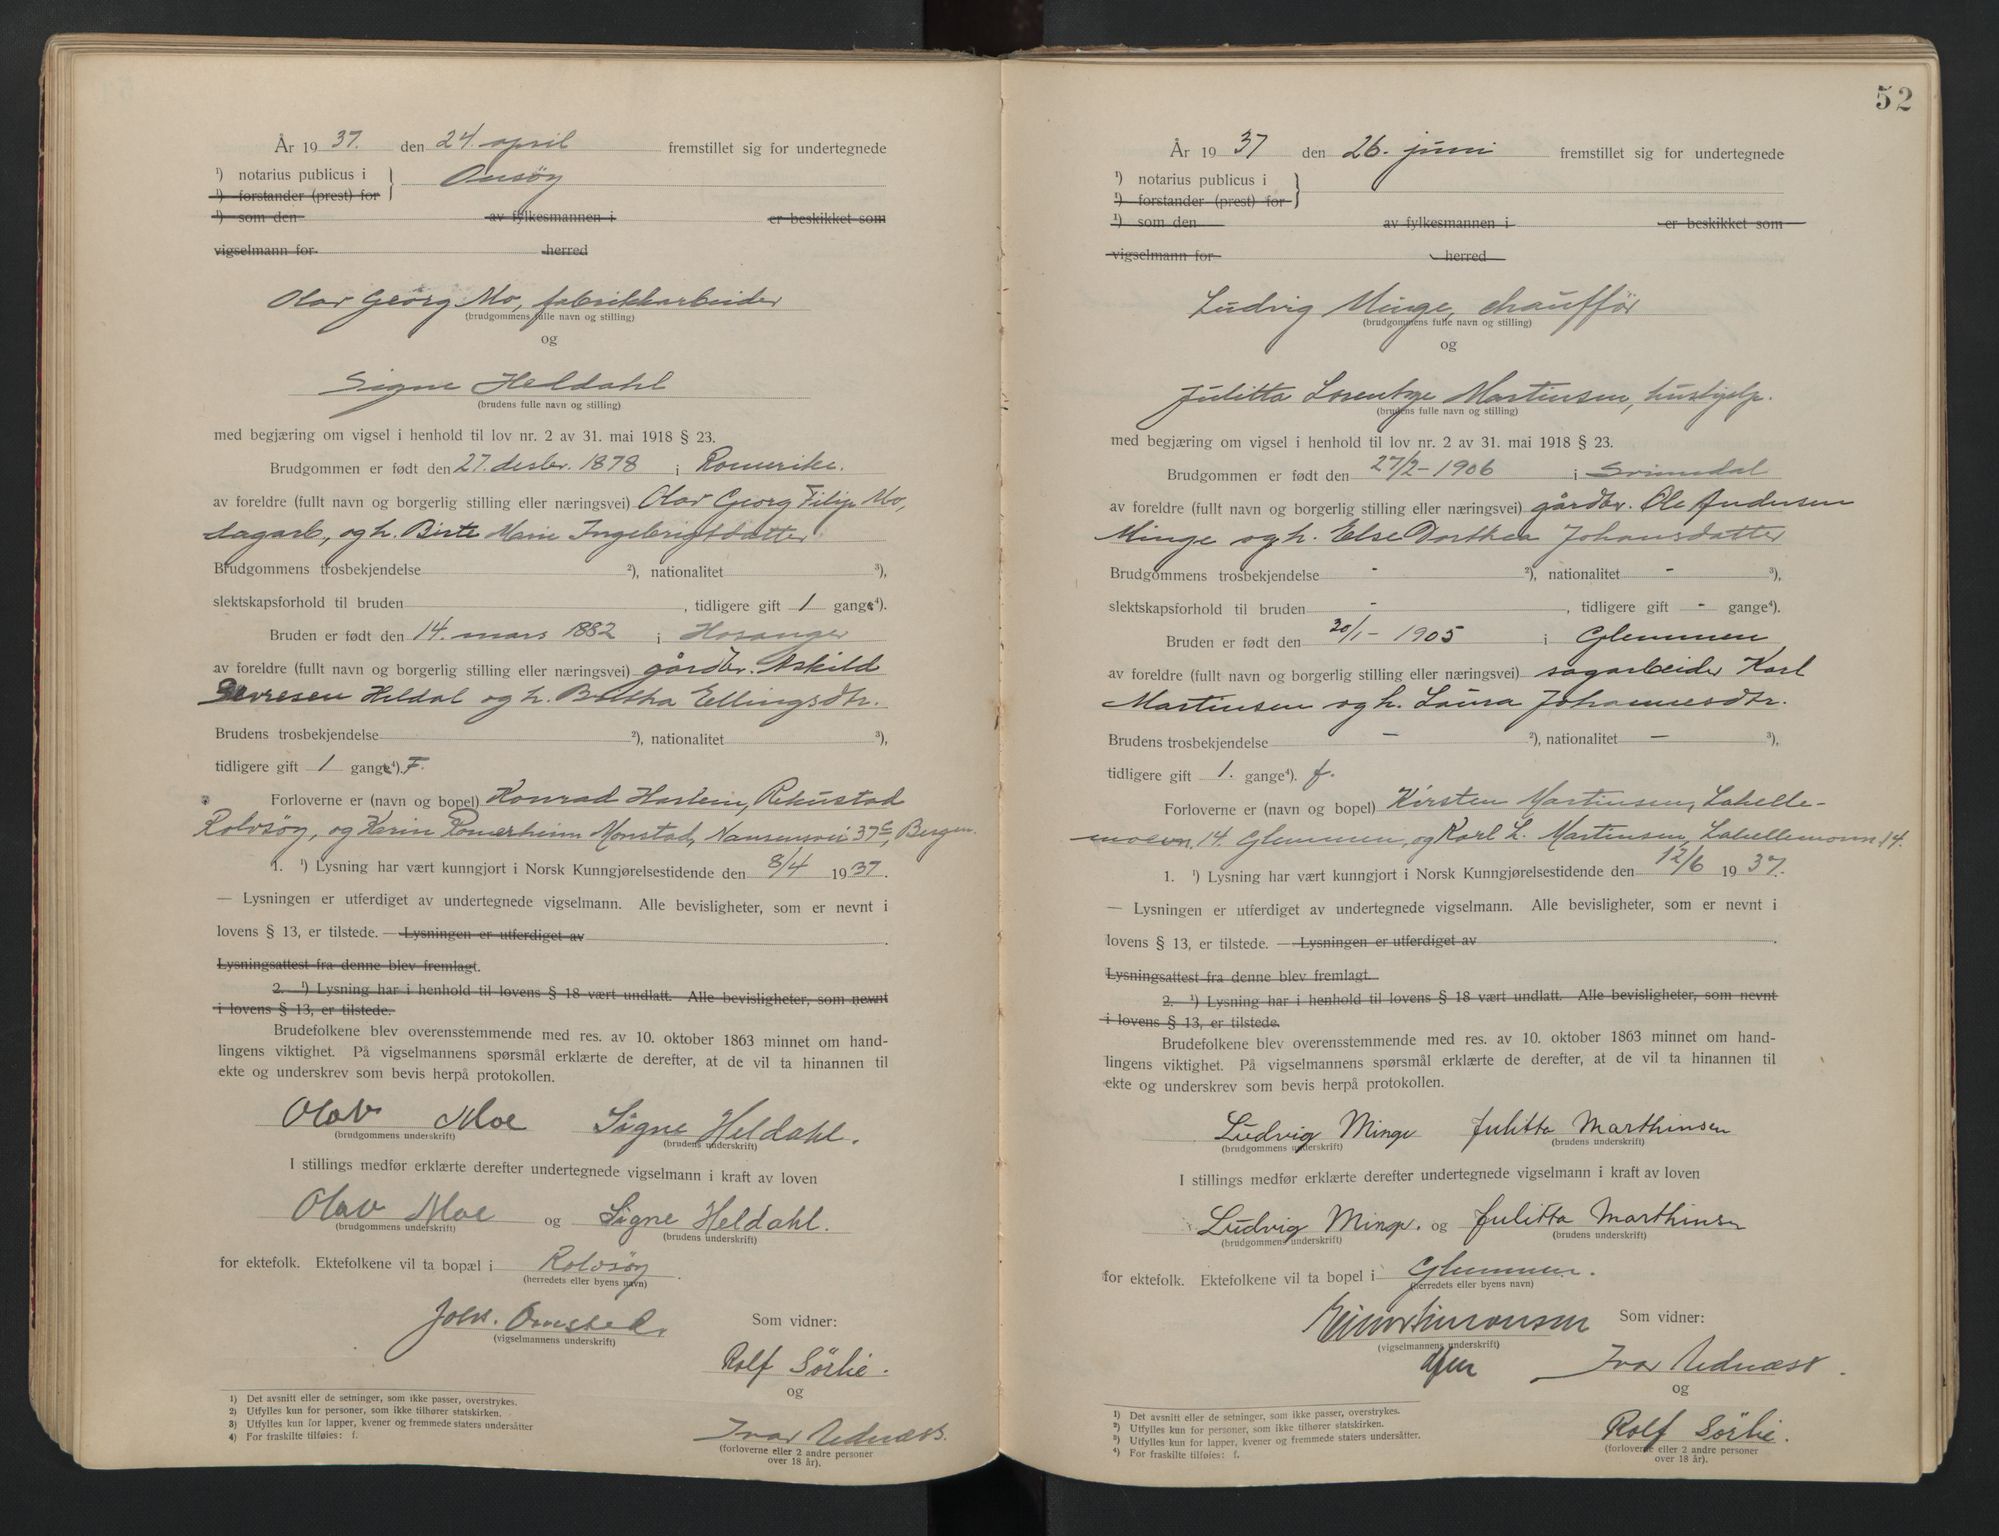 År 1937. den 24. april fremstillet sig for undertegnede
¹) notarius publicus i } Onsöy
¹) forstander (prest) for
¹) som den av fylkesmannen i er beskikket som
vigselmann for herred
Olav Georg Mo, fabrikkarbeider
(brudgommens fulle navn og stilling)
og
Signe Heldahl
(brudens fulle navn og stilling)
med begjæring om vigsel i henhold til lov nr. 2 av 31. mai 1918 § 23.
Brudgommen er født den 27. desbr. 1878 i Romerike.
av foreldre (fullt navn og borgerlig stilling eller næringsvei) Olav Georg Filip Mo,
dagarb, og h. Birte Marie Ingebrigtsdatter
Brudgommens trosbekjendelse ²), nationalitet ³),
slektskapsforhold til bruden , tidligere gift 1 gange⁴).
Bruden er født den 14. mars 1882 i Hosanger
av foreldre (fullt navn og borgerlig stilling eller næringsvei) gårdbr. Askild
Heldal og h. Brita Ellingsdtr.
Brudens trosbekjendelse ²), nationalitet ³),
tidligere gift 1 gange⁴). F.
Forloverne er (navn og bopel) Konrad Rekustad
Rolvsöy, og Karin Romerheim Monstad, Nansensvei 37c, Bergen.
1. ¹) Lysning har vært kunngjort i Norsk Kunngjørelsestidende den 8/4 1937.
— Lysningen er utferdiget av undertegnede vigselmann. Alle bevisligheter, som er nevnt i
lovens § 13, er tilstede. — Lysningen er utferdiget av
Lysningsattest fra denne blev fremlagt.
2. ¹) Lysning har i henhold til lovens § 18 vært undlatt. Alle bevisligheter, som nevnt
i lovens § 13, er tilstede.
Brudefolkene blev overensstemmende med res. av 10. oktober 1863 minnet om hand-
lingens viktighet. På vigselmannens spørsmål erklærte de derefter, at de vil ta hinannen til
ekte og underskrev som bevis herpå protokollen.
Olav Moe Signe Heldahl.
(brudgommens underskrift) (brudens underskrift)
I stillings medfør erklærte derefter undertegnede vigselmann i kraft av loven
Olav Moe og Signe Heldahl.
(brudgommens underskrift) (brudens underskrift)
for ektefolk. Ektefolkene vil ta bopæl i Rolvsöy
(herredets eller byens navn)
Som vidner:
(vigselmannens underskrift)
Rolf Sörlie.
og
Ivar Udnæs.
(forloverne eller 2 andre personer
over 18 år).
1) Det avsnitt eller de setninger, som ikke passer, overstrykes.
2) Utfylles kun for personer, som ikke tilhører statskirken.
3) Utfylles kun for lapper, kvener og fremmede staters undersåtter
4) For fraskilte tilføies: f.
52
År 1937 den 26. juni fremstillet sig for undertegnede
¹) notarius publicus i }
¹) forstander (prest) for
¹) som den av fylkesmannen i er beskikket som
vigselmann for herred
Ludvig Minge, chaufför
(brudgommens fulle navn og stilling)
og
Julitta Martinsen, hushjelp.
(brudens fulle navn og stilling)
med begjæring om vigsel i henhold til lov nr. 2 av 31. mai 1918 § 23.
Brudgommen er født den 27/2 - 1906 i Svinndal
av foreldre (fullt navn og borgerlig stilling eller næringsvei) gårdbr. Ole Andersen
Minge og h. Else Dorthea Johansdatter
Brudgommens trosbekjendelse - ²), nationalitet - ³),
slektskapsforhold til bruden - , tidligere gift - gange⁴).
Bruden er født den 30/1 - 1905 i Glemmen
av foreldre (fullt navn og borgerlig stilling eller næringsvei) sagarbeider Karl
Martinsen og h. Laura Johannesdtr.
Brudens trosbekjendelse - ²), nationalitet - ³),
tidligere gift 1. gange⁴). f.
Forloverne er (navn og bopel) Kirsten Martinsen, Labelle-
moen, 14. Glemmen, og Karl L. Martinsen, Labellemoen 14.
1. ¹) Lysning har vært kunngjort i Norsk Kunngjørelsestidende den 12/6 1937.
— Lysningen er utferdiget av undertegnede vigselmann. Alle bevisligheter, som er nevnt i
lovens § 13, er tilstede. — Lysningen er utferdiget av
Lysningsattest fra denne blev fremlagt.
2. ¹) Lysning har i henhold til lovens § 18 vært undlatt. Alle bevisligheter, som nevnt
i lovens § 13, er tilstede.
Brudefolkene blev overensstemmende med res. av 10. oktober 1863 minnet om hand-
lingens viktighet. På vigselmannens spørsmål erklærte de derefter, at de vil ta hinannen til
ekte og underskrev som bevis herpå protokollen.
Ludvig Minge Julitta Marthinsen
(brudgommens underskrift) (brudens underskrift)
I stillings medfør erklærte derefter undertegnede vigselmann i kraft av loven
Ludvig Minge. og Julitta Marthinsen
(brudgommens underskrift) (brudens underskrift)
for ektefolk. Ektefolkene vil ta bopel i Glemmen.
(herredets eller byens navn)
Einar Simonsen Som vidner:
(vigselmannens underskrift)
Ivar Udnæs.
og
Rolf Sörlie.
(forloverne eller 2 andre personer
over 18 år).
¹) Det avsnitt eller de setninger, som ikke passer, overstrykes.
²) Utfylles kun for personer, som ikke tilhører statskirken.
³) Utfylles kun for lapper, kvener og fremmede staters undersåtter.
⁴) For fraskilte tilføies: f.